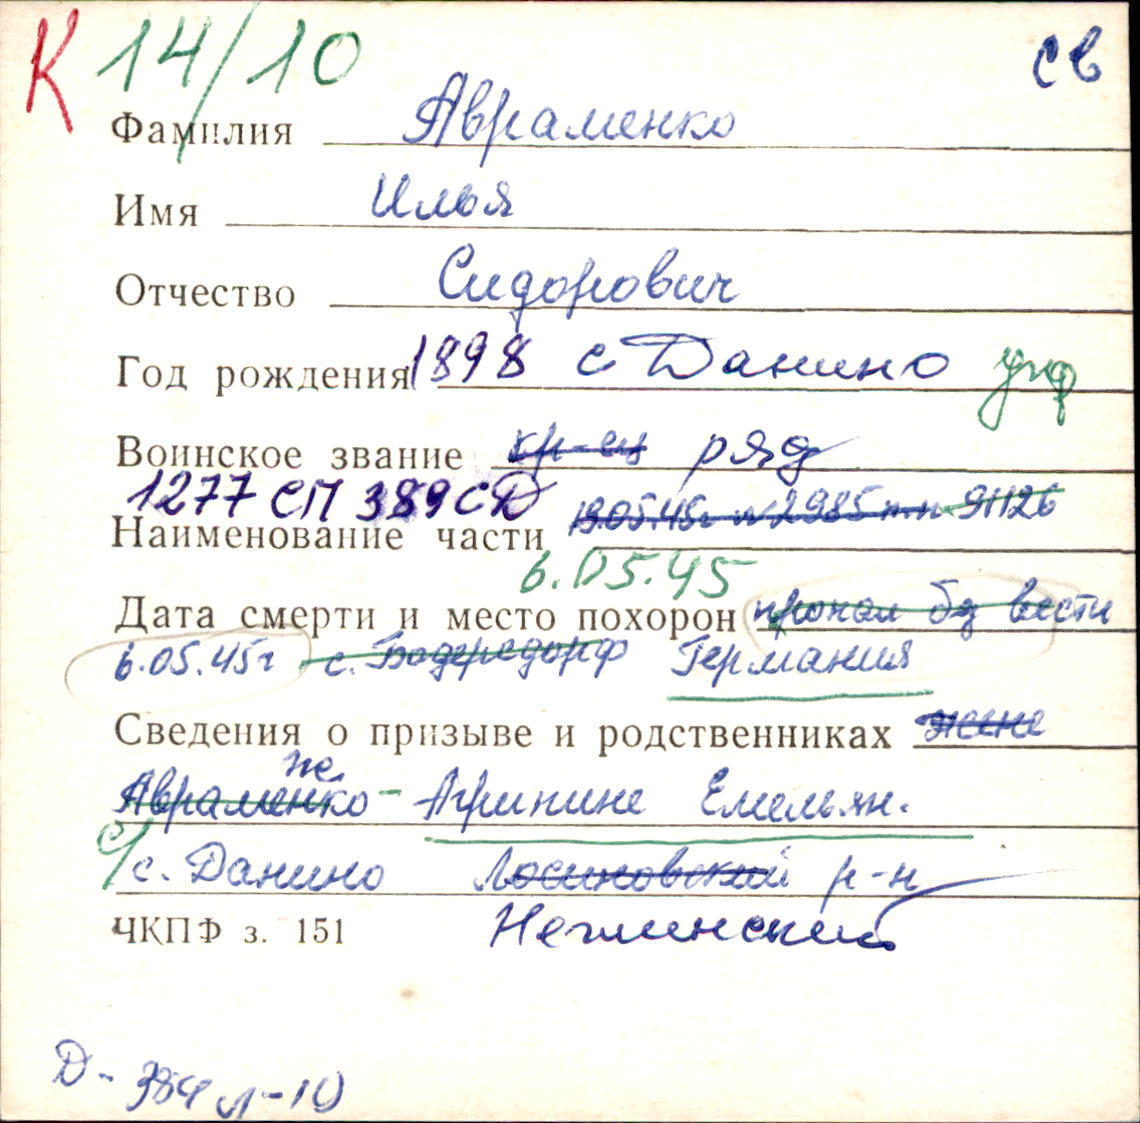 К 14/10 св
Фамилия Авраменко
Имя Илья
Отчество Сидорович
Год рождения 1898 с Данино укр
Воинское звание кр-ец ряд
1277 СП 389 СД
Наименование части 19.05.45г №2985 пп 91126
6.05.45
Дата смерти и место похорон пропал без вести
6.05.45г с. Бадерсдорф Германия
Сведения о призыве и родственниках жене
же
Авраменко - Агрипине Емельян.
с/с. Данино Лосиновский р-н
ЧКПФ з. 151 Нежинский
Д-384 л-10